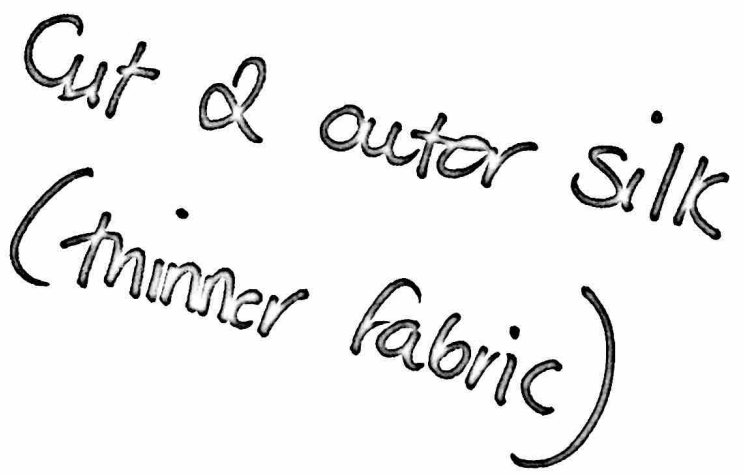 Cut 2 outer silk
(thinner fabric)